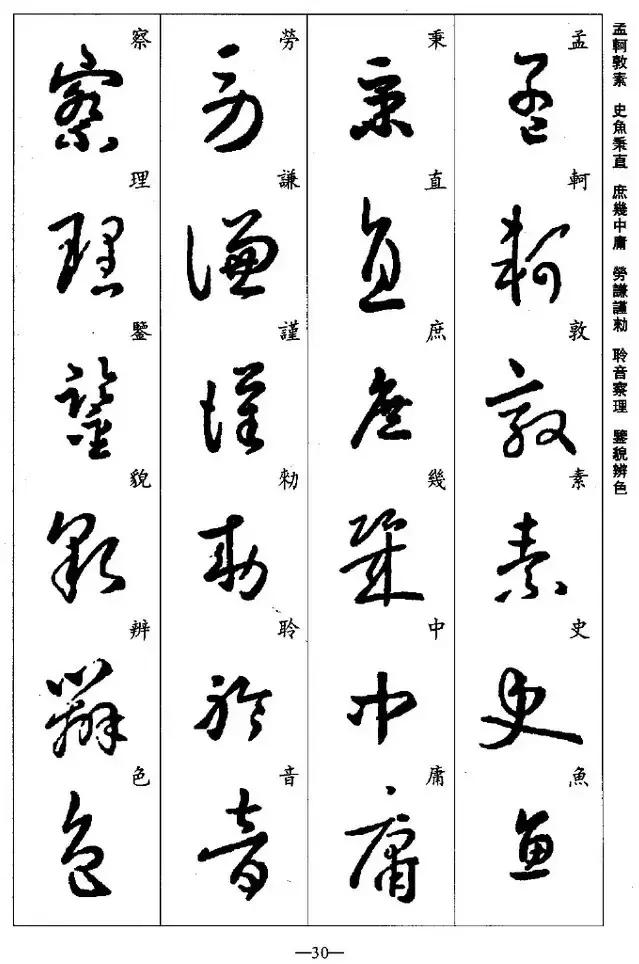 孟軻敦素　史魚秉直　庶幾中庸　勞謙謹勅　聆音察理　鑒貌辨色
孟軻敦素史魚
秉直庶幾中庸
勞謙謹勅聆音
察理鑒貌辨色
—30—